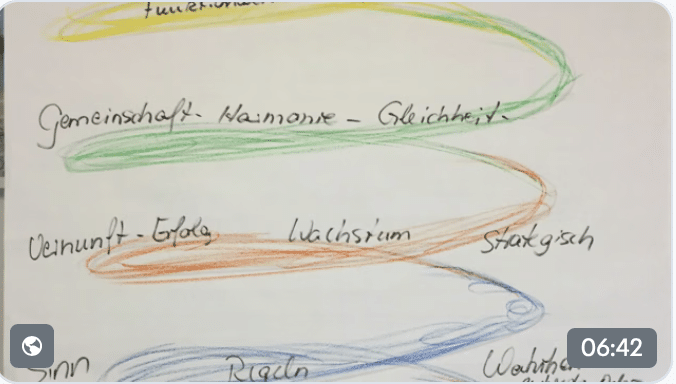 Gemeinschaft - Harmonie - Gleichheit -
Vernunft - Erfolg Wachstum Strategisch
Sinn Regeln
06:42